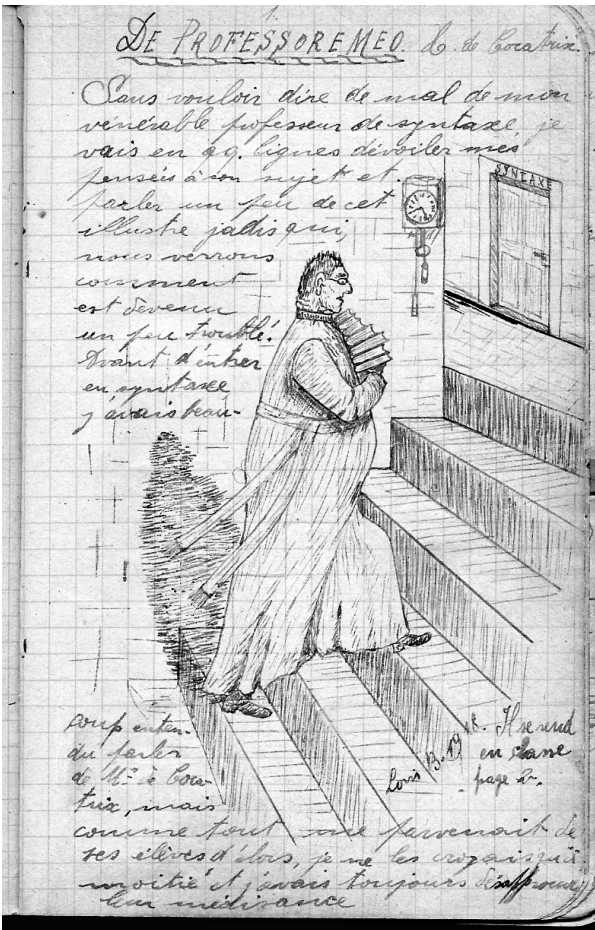 1.
DE PROFESSORE MEO. L. de Cocatrix.
Sans vouloir dire de mal de mon
vénérable professeur de syntaxe, je
vais en qq. lignes dévoiler mes
pensées à son sujet et
parler un peu de cet
illustre jadis qui,
nous verrons
comment
est devenu
un peu troublé.
Avant d'entrer
en syntaxe
j'avais beau-
SYNTAXE
coup enten-
du parler
de Mr de Coca-
trix, mais
comme tout me parvenait de
ses élèves d'alors, je ne les croyais qu'à
moitié et j'avais toujours désapprouvé
leur médisance
Louis B. 1918. Il se rend
en classe
page 2.